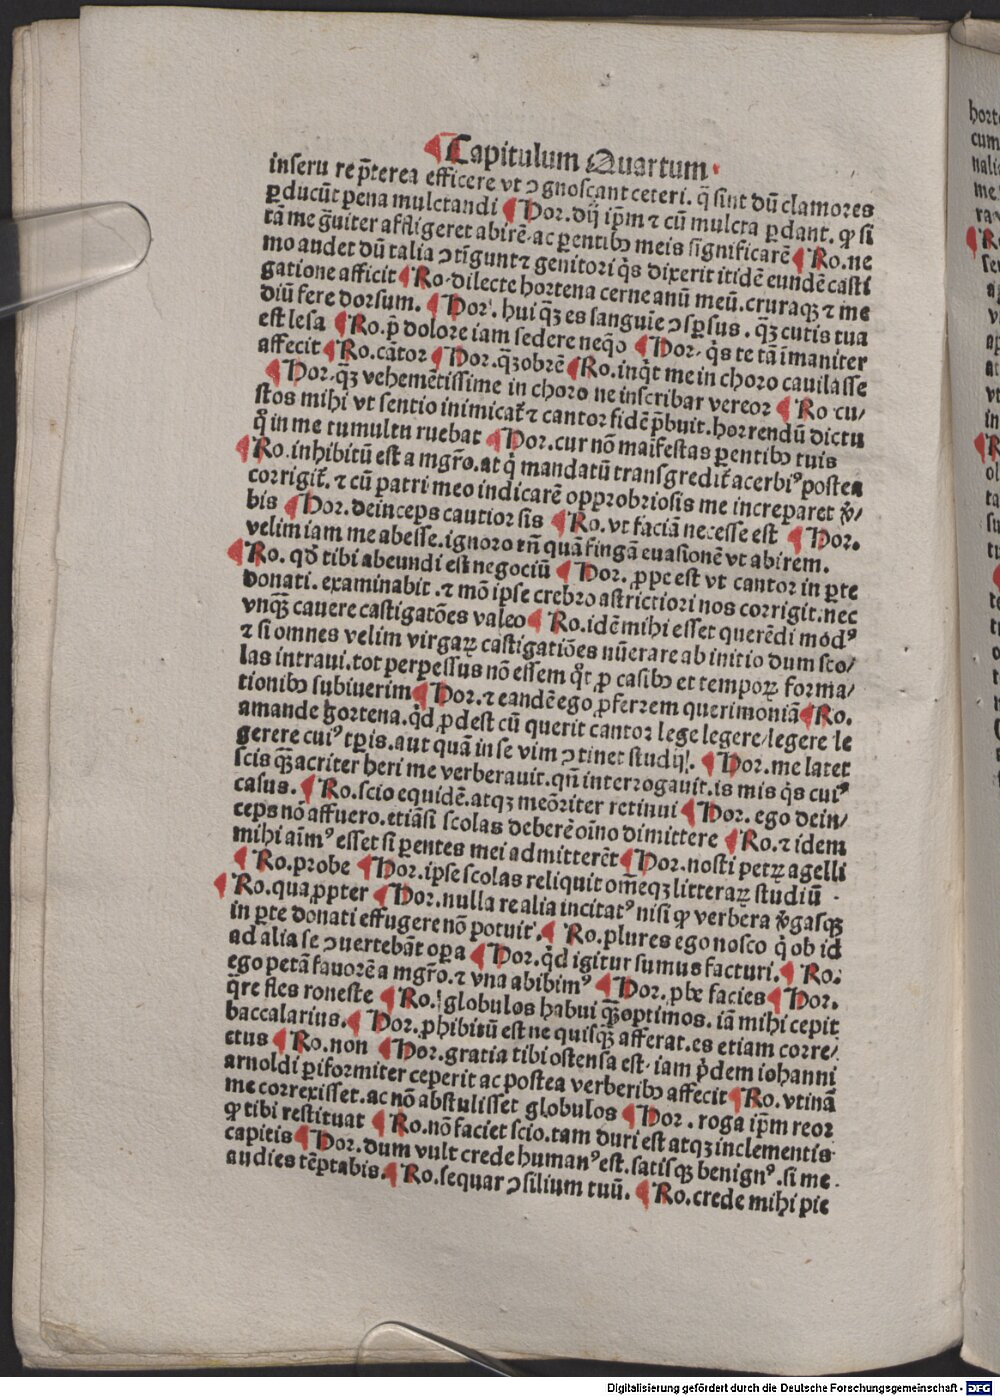 ¶ Capitulum Quartum
inseru re p̄terea efficere vt ↄgnoscant ceteri. q̄ sint dū clamores
ꝑducūt pena mulctandi ¶ Hor. dij ip̄m ⁊ cū mulcta ꝑdant. ꝙ si
tā me g̈uiter affligeret abirē. ac ꝑentibꝰ meis significarē ¶ Ro. ne
mo audet dū talia ↄtīgunt ⁊ genitori q̇s dixerit itidē eundē casti
gatione afficit ¶ Ro. dilecte hortena cerne anū meū. cruraqꝫ ⁊ me
diū fere dorsum. ¶ Hor. hui qꝫ es sanguīe ↄsꝑsus. qꝫ cutis tua
est lesa ¶ Ro. p̄ dolore iam sedere neq̇o ¶ Hor. q̇s te tā īmaniter
affecit ¶ Ro. cātor ¶ Hor. qꝫobrē ¶ Ro. inq̇t me in choro cauilasse
¶ Hor. qꝫ vehemētissime in choro ne inscribar vereor ¶ Ro cu/
stos mihi vt sentio inimicat᷑ ⁊ cantor fidē p̄buit. horrendū dictu
q̇ in me tumultu ruebat ¶ Hor. cur nō maīfestas ꝑentibꝰ tuis
¶ Ro. inhibitū est a mgr̄o. at q̇ mandatū transgredit᷑ acerbiꝰ postea
corrigit᷑. ⁊ cū patri meo indicarē opprobriosis me increparet v̓/
bis ¶ Hor. deinceps cautior sis ¶ Ro. vt faciā necesse est ¶ Hor.
velim iam me abesse. ignoro tn̄ quā fingā euasionē vt abirem.
¶ Ro. qd̄ tibi abeundi est negociū ¶ Hor. ꝓpe est vt cantor in ꝑte
donati. examinabit. ⁊ mō ipse crebro astrictiori nos corrigit. nec
vnqꝫ cauere castigatōes valeo ¶ Ro. idē mihi esset querēdi modꝰ
⁊ si omnes velim virgaꝝ castigatiōes nūerare ab initio dum sco/
las intraui. tot perpessus nō essem q̇t ꝓ casibꝰ et tempoꝝ forma/
tionibꝰ subiuerim ¶ Hor. ⁊ eandē ego ꝓferrem querimoniā ¶ Ro.
amande hortena. q̇d ꝓdest cū querit cantor lege legere/legere le
gerere cuiꝰ tꝑis. aut quā in se vim ↄtinet studij. ¶ Hor. me latet
scis qꝫ acriter heri me verberauit. qn̄ interrogauit. is mis q̇s cuiꝰ
casus. ¶ Ro. scio equidē. atqꝫ meōriter retinui ¶ Hor. ego dein/
ceps nō affuero. etiāsi scolas deberē oīno dimittere ¶ Ro. ⁊ idem
mihi aīmꝰ esset si ꝑentes mei admitterēt ¶ Hor. nosti petꝝ agelli
¶ Ro. probe ¶ Hor. ipse scolas reliquit om̄eqꝫ litteraꝝ studiū .
¶ Ro. quaꝓpter ¶ Hor. nulla re alia incitatꝰ nisi ꝙ verbera v̓gasqꝫ
in ꝑte donati effugere nō potuit. ¶ Ro. plures ego nosco q̇ ob id
ad alia se ↄuertebāt oꝑa ¶ Hor. q̇d igitur sumus facturi. ¶ Ro.
ego petā fauorē a mgr̄o. ⁊ vna abibimꝰ ¶ Hor. ꝓbe facies ¶ Hor.
q̈re fles roneste ¶ Ro. globulos habui qꝫ optimos. iā mihi cepit
baccalarius. ¶ Hor. ꝓhibitū est ne quisqꝫ afferat. es etiam corre/
ctus ¶ Ro. non ¶ Hor. gratia tibi ostensa est. iam p̄dem iohanni
arnoldi ꝑiformiter ceperit ac postea verberibꝰ affecit ¶ Ro. vtinā
me correxisset. ac nō abstulisset globulos ¶ Hor. roga ip̄m reor
ꝙ tibi restituat ¶ Ro. nō faciet scio. tam duri est atqꝫ inclementis
capitis ¶ Hor. dum vult crede humanꝰ est. satisqꝫ benignꝰ. si me
audies tēptabis. ¶ Ro. sequar ↄsilium tuū. ¶ Ro. crede mihi pie
Digitalisierung gefördert durch die Deutsche Forschungsgemeinschaft - DFG